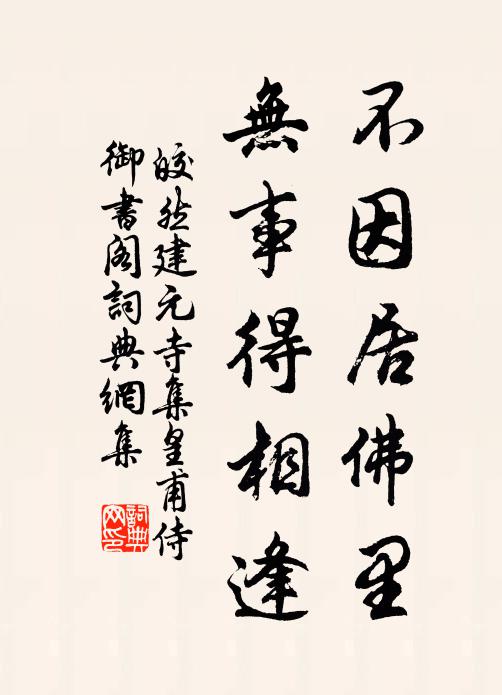 不因居佛里
無事得相逢
皎然建元寺集皇甫侍
御書閣詞典網集
詞典
网印